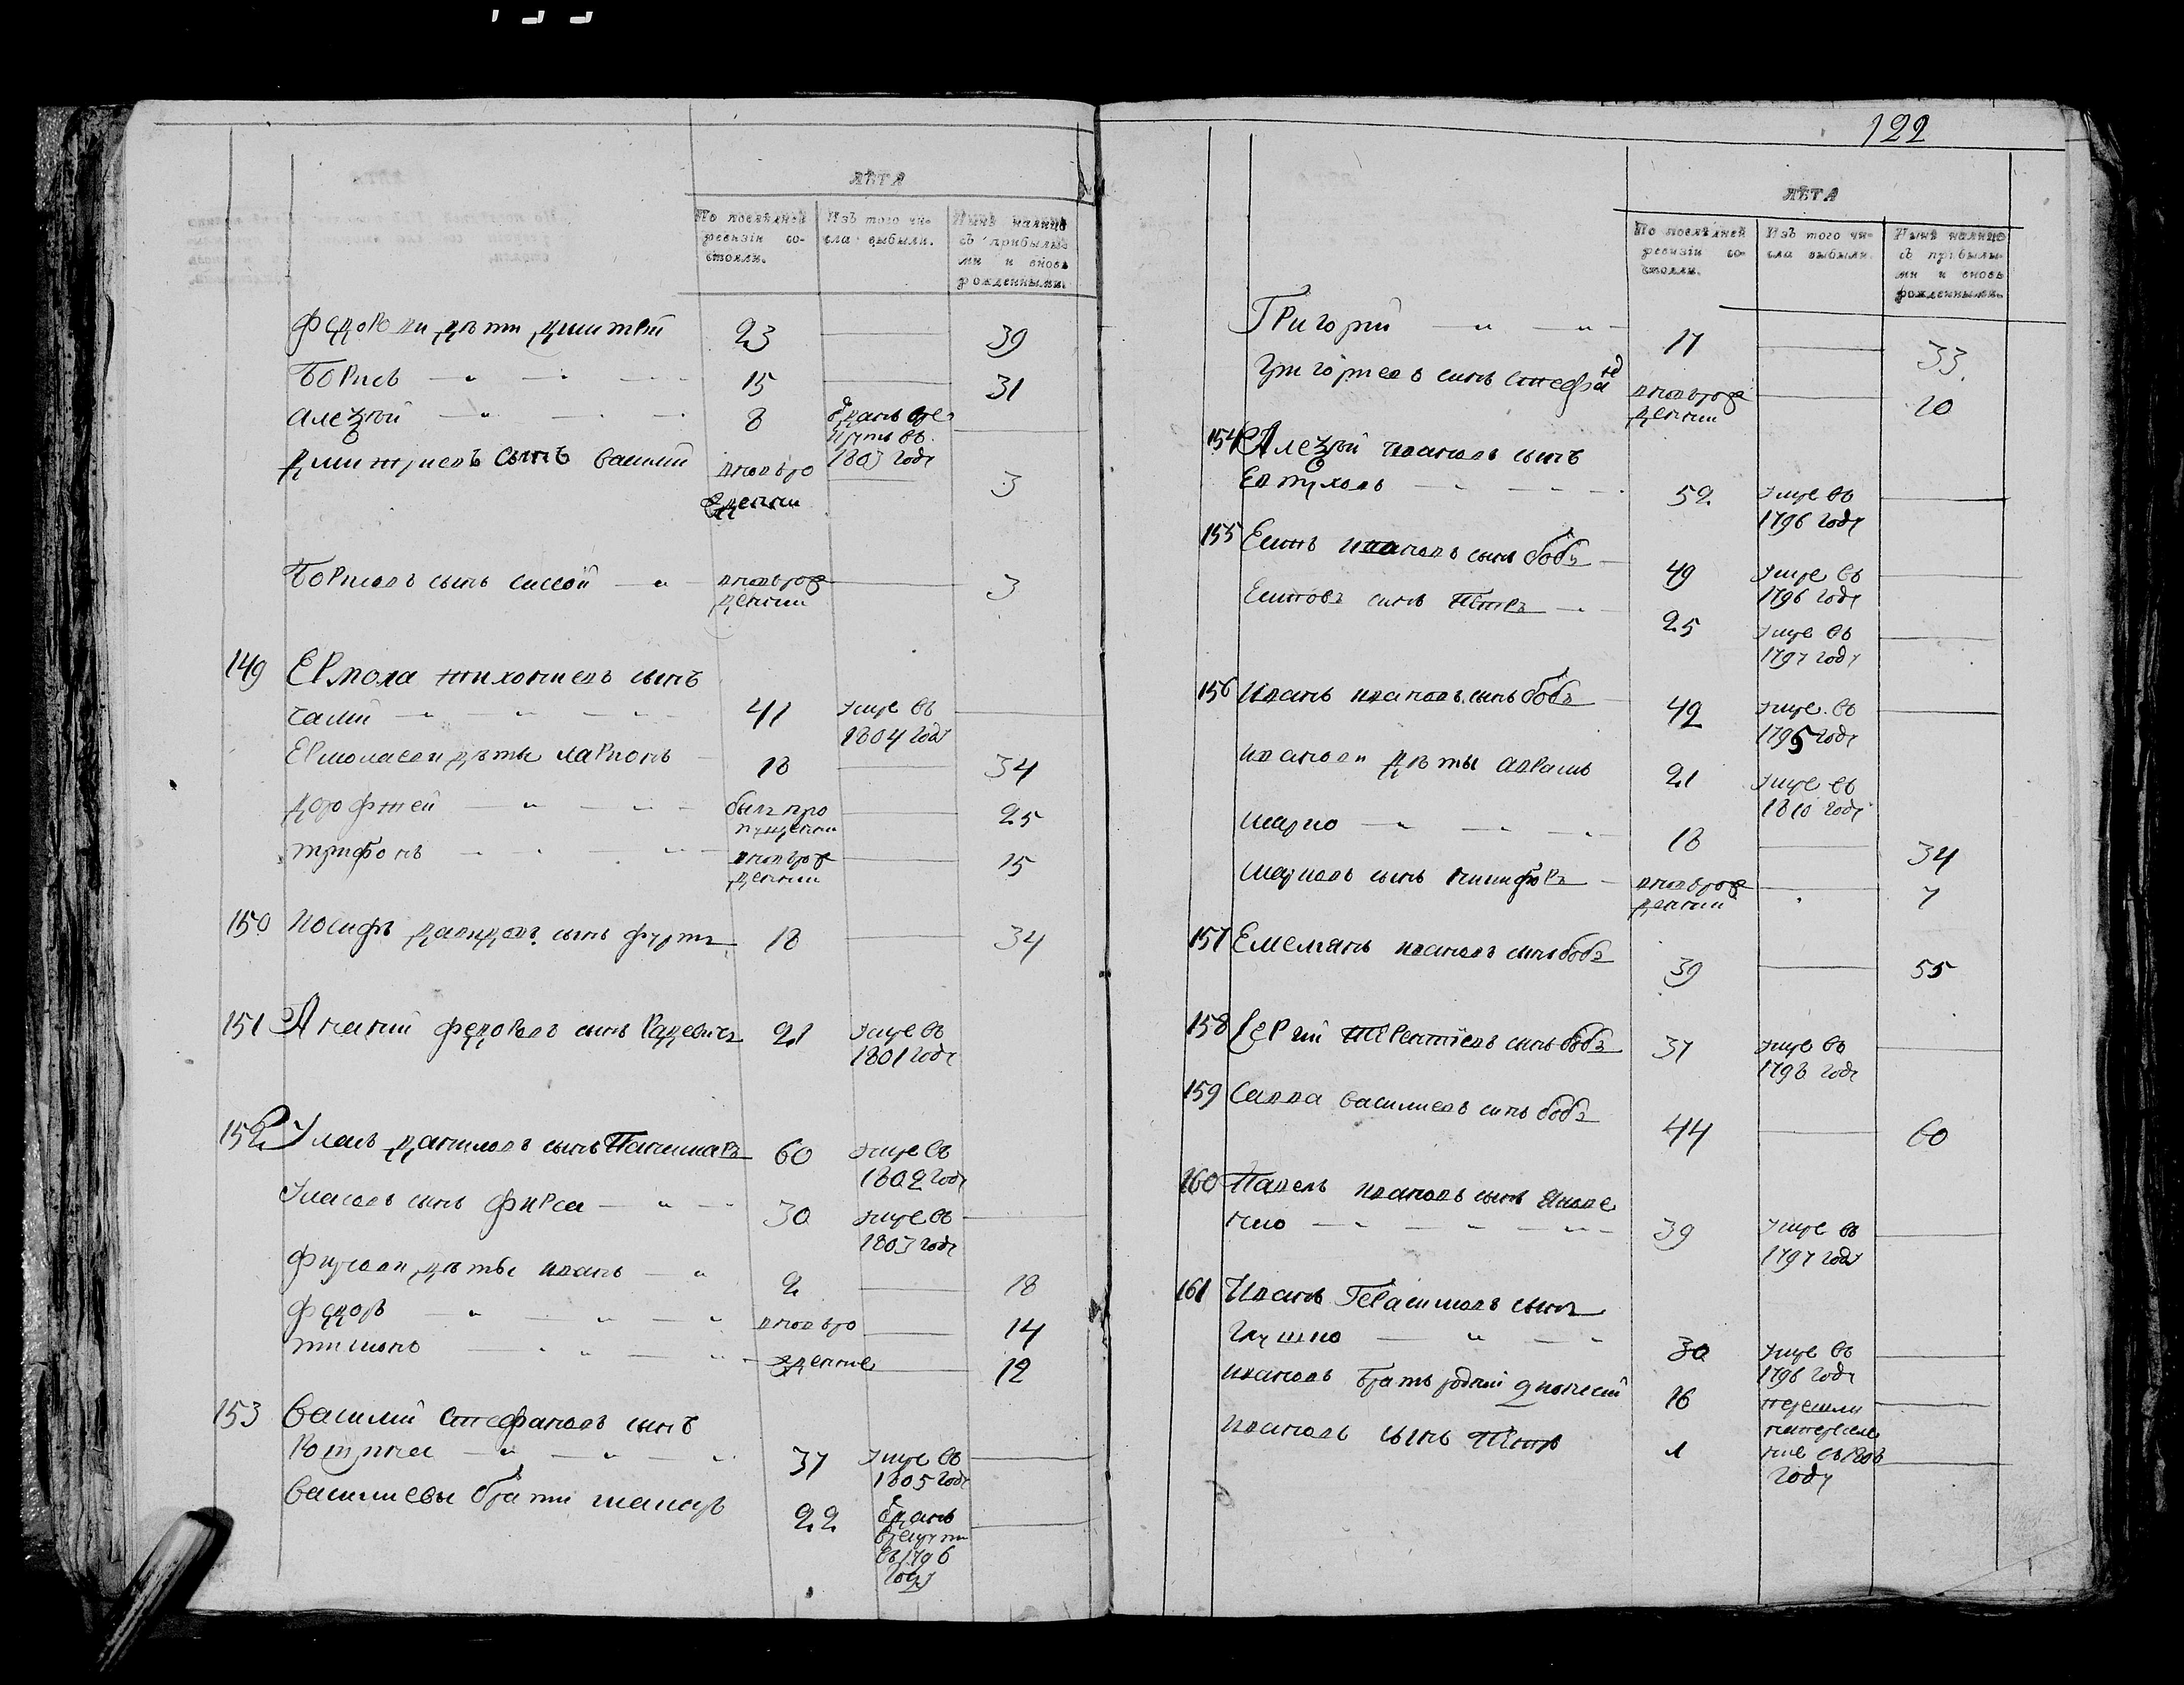 ЛѢТА
По послѣдней ревизіи состояли.
Изъ того числа выбыли.
Нынѣ налицо съ прибылыми и вновь рожденными.
Федоровы дѣти Дмитрей 23 — 39
Борисъ — " — 15 — 31
Алексѣй — " — 8 зданъ врекруты въ 1803 году —
Дмитриевъ сынъ Василий вновьрожденный — 3
Борисовъ сынъ Сисой — " вновьрожденный — 3
149 Ермола Тихониевъ сынъ
Чалий — " — 41 умре въ 1804 году —
Ермолаевы дѣты Ларионъ — 18 — 34
Дорофтей — " — былъ пропущенны — 25
Трифонъ — " — вновьрожденный — 15
150 Иосифъ Давидовъ сынъ Фурта 18 — 34
151 Ананий Федоровъ сынъ Радевичъ 21 умре въ 1801 году
152 Уласъ Даниловъ сынъ 60 умре въ 1802 году
Уласовъ сынъ Фирса — " — 30 умре въ 1803 году —
Фирсовы дѣты Иванъ — " 2 — 18
Федоръ — " — " — " вновьро — 14
Тишонъ — " — " — жденные — 12
153 Василий Стефановъ сынъ
— " — " — 37 умре въ 1805 году —
Василиевы брати Макаръ 22 зданъ врекруты въ 1796 году —
122
ЛѢТА
По послѣдней ревизіи состояли.
Изъ того числа выбыли.
Нынѣ налицо съ прибылыми и вновь рожденными.
Григорий — " — " — 17 — 33
Григориевъ сынъ Стефанъ вновьрожденный — 10
154 Алексѣй Ивановъ сынъ
Евтуховъ — " — 52 умре въ 1796 году —
155 Ивановъ сынъ Бобъ — 49 умре въ 1796 году —
сынъ Петръ — " 25 умре въ 1797 году —
156 Иванъ Ивановъ сынъ Бобъ — 42 умре въ 1795 году —
Ивановы дѣты Аврамъ 21 умре въ 1810 году
Марко — " — " — 18 — 34
Марковъ сынъ Никифоръ — вновьрожденный — 7
157 Емелянъ Ивановъ сынъ Бобъ 39 — 55
158 Сергий Терентиевъ сынъ Бобъ 37 умре въ 1798 году —
159 Савва Василиевъ сынъ Бобъ 44 — 60
160 Павелъ Ивановъ сынъ Яковенко — " — " — 39 умре въ 1797 году —
161 Иванъ Герасимовъ сынъ
Глушко — " — " 30 умре въ 1796 году —
Ивановъ братъ родний Дионисий 16 —
Ивановъ сынъ Петръ 1 году —